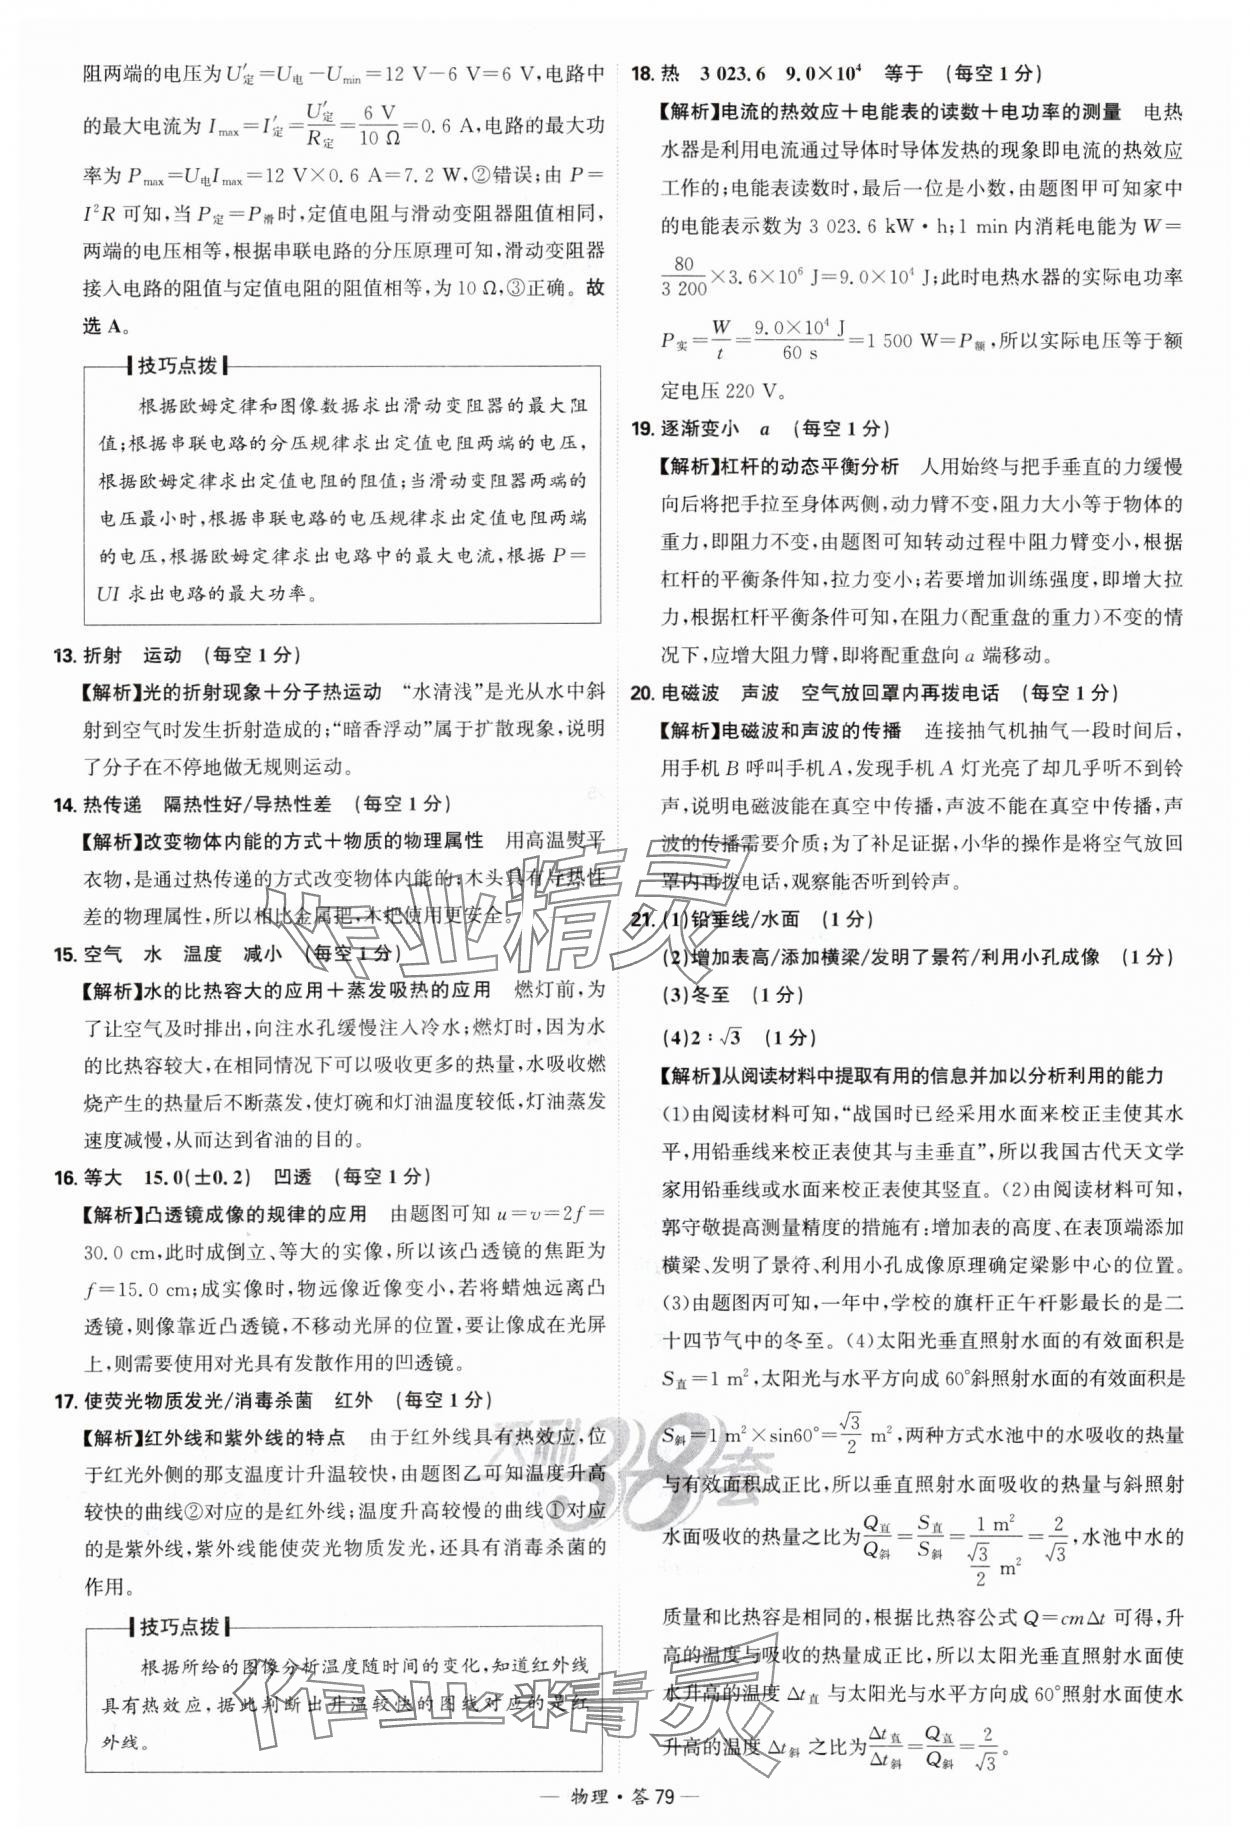 阻两端的电压为U′定=U电-Umin=12 V-6 V=6 V,电路中
的最大电流为Imax=I′定=U′定/R定=6 V/10 Ω=0.6 A,电路的最大功
率为Pmax=U电Imax=12 V×0.6 A=7.2 W,②错误;由P=
I²R可知,当P定=P滑时,定值电阻与滑动变阻器阻值相同,
两端的电压相等,根据串联电路的分压原理可知,滑动变阻器
接入电路的阻值与定值电阻的阻值相等,为10 Ω,③正确。故
选A。
技巧点拨
根据欧姆定律和图像数据求出滑动变阻器的最大阻
值;根据串联电路的分压规律求出定值电阻两端的电压,
根据欧姆定律求出定值电阻的阻值;当滑动变阻器两端的
电压最小时,根据串联电路的电压规律求出定值电阻两端
的电压,根据欧姆定律求出电路中的最大电流,根据P=
UI求出电路的最大功率。
13. 折射 运动 (每空1分)
【解析】光的折射现象+分子热运动 “水清浅”是光从水中斜
射到空气时发生折射造成的;“暗香浮动”属于扩散现象,说明
了分子在不停地做无规则运动。
14. 热传递 隔热性好/导热性差 (每空1分)
【解析】改变物体内能的方式+物质的物理属性 用高温熨平
衣物,是通过热传递的方式改变物体内能的;木头具有导热性
差的物理属性,所以相比金属把,木把使用更安全。
15. 空气 水 温度 减小 (每空1分)
【解析】水的比热容大的应用+蒸发吸热的应用 燃灯前,为
了让空气及时排出,向注水孔缓慢注入冷水;燃灯时,因为水
的比热容较大,在相同情况下可以吸收更多的热量,水吸收燃
烧产生的热量后不断蒸发,使灯碗和灯油温度较低,灯油蒸发
速度减慢,从而达到省油的目的。
16. 等大 15.0(±0.2) 凹透 (每空1分)
【解析】凸透镜成像的规律的应用 由题图可知u=v=2f=
30.0 cm,此时成倒立、等大的实像,所以该凸透镜的焦距为
f=15.0 cm;成实像时,物远像近像变小,若将蜡烛远离凸
透镜,则像靠近凸透镜,不移动光屏的位置,要让像成在光屏
上,则需要使用对光具有发散作用的凹透镜。
17. 使荧光物质发光/消毒杀菌 红外 (每空1分)
【解析】红外线和紫外线的特点 由于红外线具有热效应,位
于红光外侧的那支温度计升温较快,由题图乙可知温度升高
较快的曲线②对应的是红外线;温度升高较慢的曲线①对应
的是紫外线,紫外线能使荧光物质发光,还具有消毒杀菌的
作用。
技巧点拨
根据所给的图像分析温度随时间的变化,知道红外线
具有热效应,据此判断出升温较快的图线对应的是红
外线。
18. 热 3 023.6 9.0×10⁴ 等于 (每空1分)
【解析】电流的热效应+电能表的读数+电功率的测量 电热
水器是利用电流通过导体时导体发热的现象即电流的热效应
工作的;电能表读数时,最后一位是小数,由题图甲可知家中
的电能表示数为3 023.6 kW·h;1 min内消耗电能为W=
80/3 200×3.6×10⁶ J=9.0×10⁴ J;此时电热水器的实际电功率
P实=W/t=9.0×10⁴ J/60 s=1 500 W=P额,所以实际电压等于额
定电压220 V。
19. 逐渐变小 a (每空1分)
【解析】杠杆的动态平衡分析 人用始终与把手垂直的力缓慢
向后将把手拉至身体两侧,动力臂不变,阻力大小等于物体的
重力,即阻力不变,由题图可知转动过程中阻力臂变小,根据
杠杆的平衡条件知,拉力变小;若要增加训练强度,即增大拉
力,根据杠杆平衡条件可知,在阻力(配重盘的重力)不变的情
况下,应增大阻力臂,即将配重盘向a端移动。
20. 电磁波 声波 空气放回罩内再拨电话 (每空1分)
【解析】电磁波和声波的传播 连接抽气机抽气一段时间后,
用手机B呼叫手机A,发现手机A灯光亮了却几乎听不到铃
声,说明电磁波能在真空中传播,声波不能在真空中传播,声
波的传播需要介质;为了补足证据,小华的操作是将空气放回
罩内再拨电话,观察能否听到铃声。
21. (1)铅垂线/水面 (1分)
(2)增加表高/添加横梁/发明了景符/利用小孔成像 (1分)
(3)冬至 (1分)
(4)2∶√3 (1分)
【解析】从阅读材料中提取有用的信息并加以分析利用的能力
(1)由阅读材料可知,“战国时已经采用水面来校正圭使其水
平,用铅垂线来校正表使其与圭垂直”,所以我国古代天文学
家用铅垂线或水面来校正表使其竖直。(2)由阅读材料可知,
郭守敬提高测量精度的措施有;增加表的高度、在表顶端添加
横梁、发明了景符、利用小孔成像原理确定梁影中心的位置。
(3)由题图丙可知,一年中,学校的旗杆正午杆影最长的是二
十四节气中的冬至。(4)太阳光垂直照射水面的有效面积是
S直=1 m²,太阳光与水平方向成60°斜照射水面的有效面积是
S斜=1 m²×sin60°=√3/2 m²,两种方式水池中的水吸收的热量
与有效面积成正比,所以垂直照射水面吸收的热量与斜照射
水面吸收的热量之比为Q直/Q斜=S直/S斜=1 m²/(√3/2 m²)=2/√3,水池中水的
质量和比热容是相同的,根据比热容公式Q=cmΔt可得,升
高的温度与吸收的热量成正比,所以太阳光垂直照射水面使
水升高的温度Δt直与太阳光与水平方向成60°照射水面使水
升高的温度Δt斜之比为Δt直/Δt斜=Q直/Q斜=2/√3。
作业精灵
天利38套
作业精灵
— 物理·答79 —